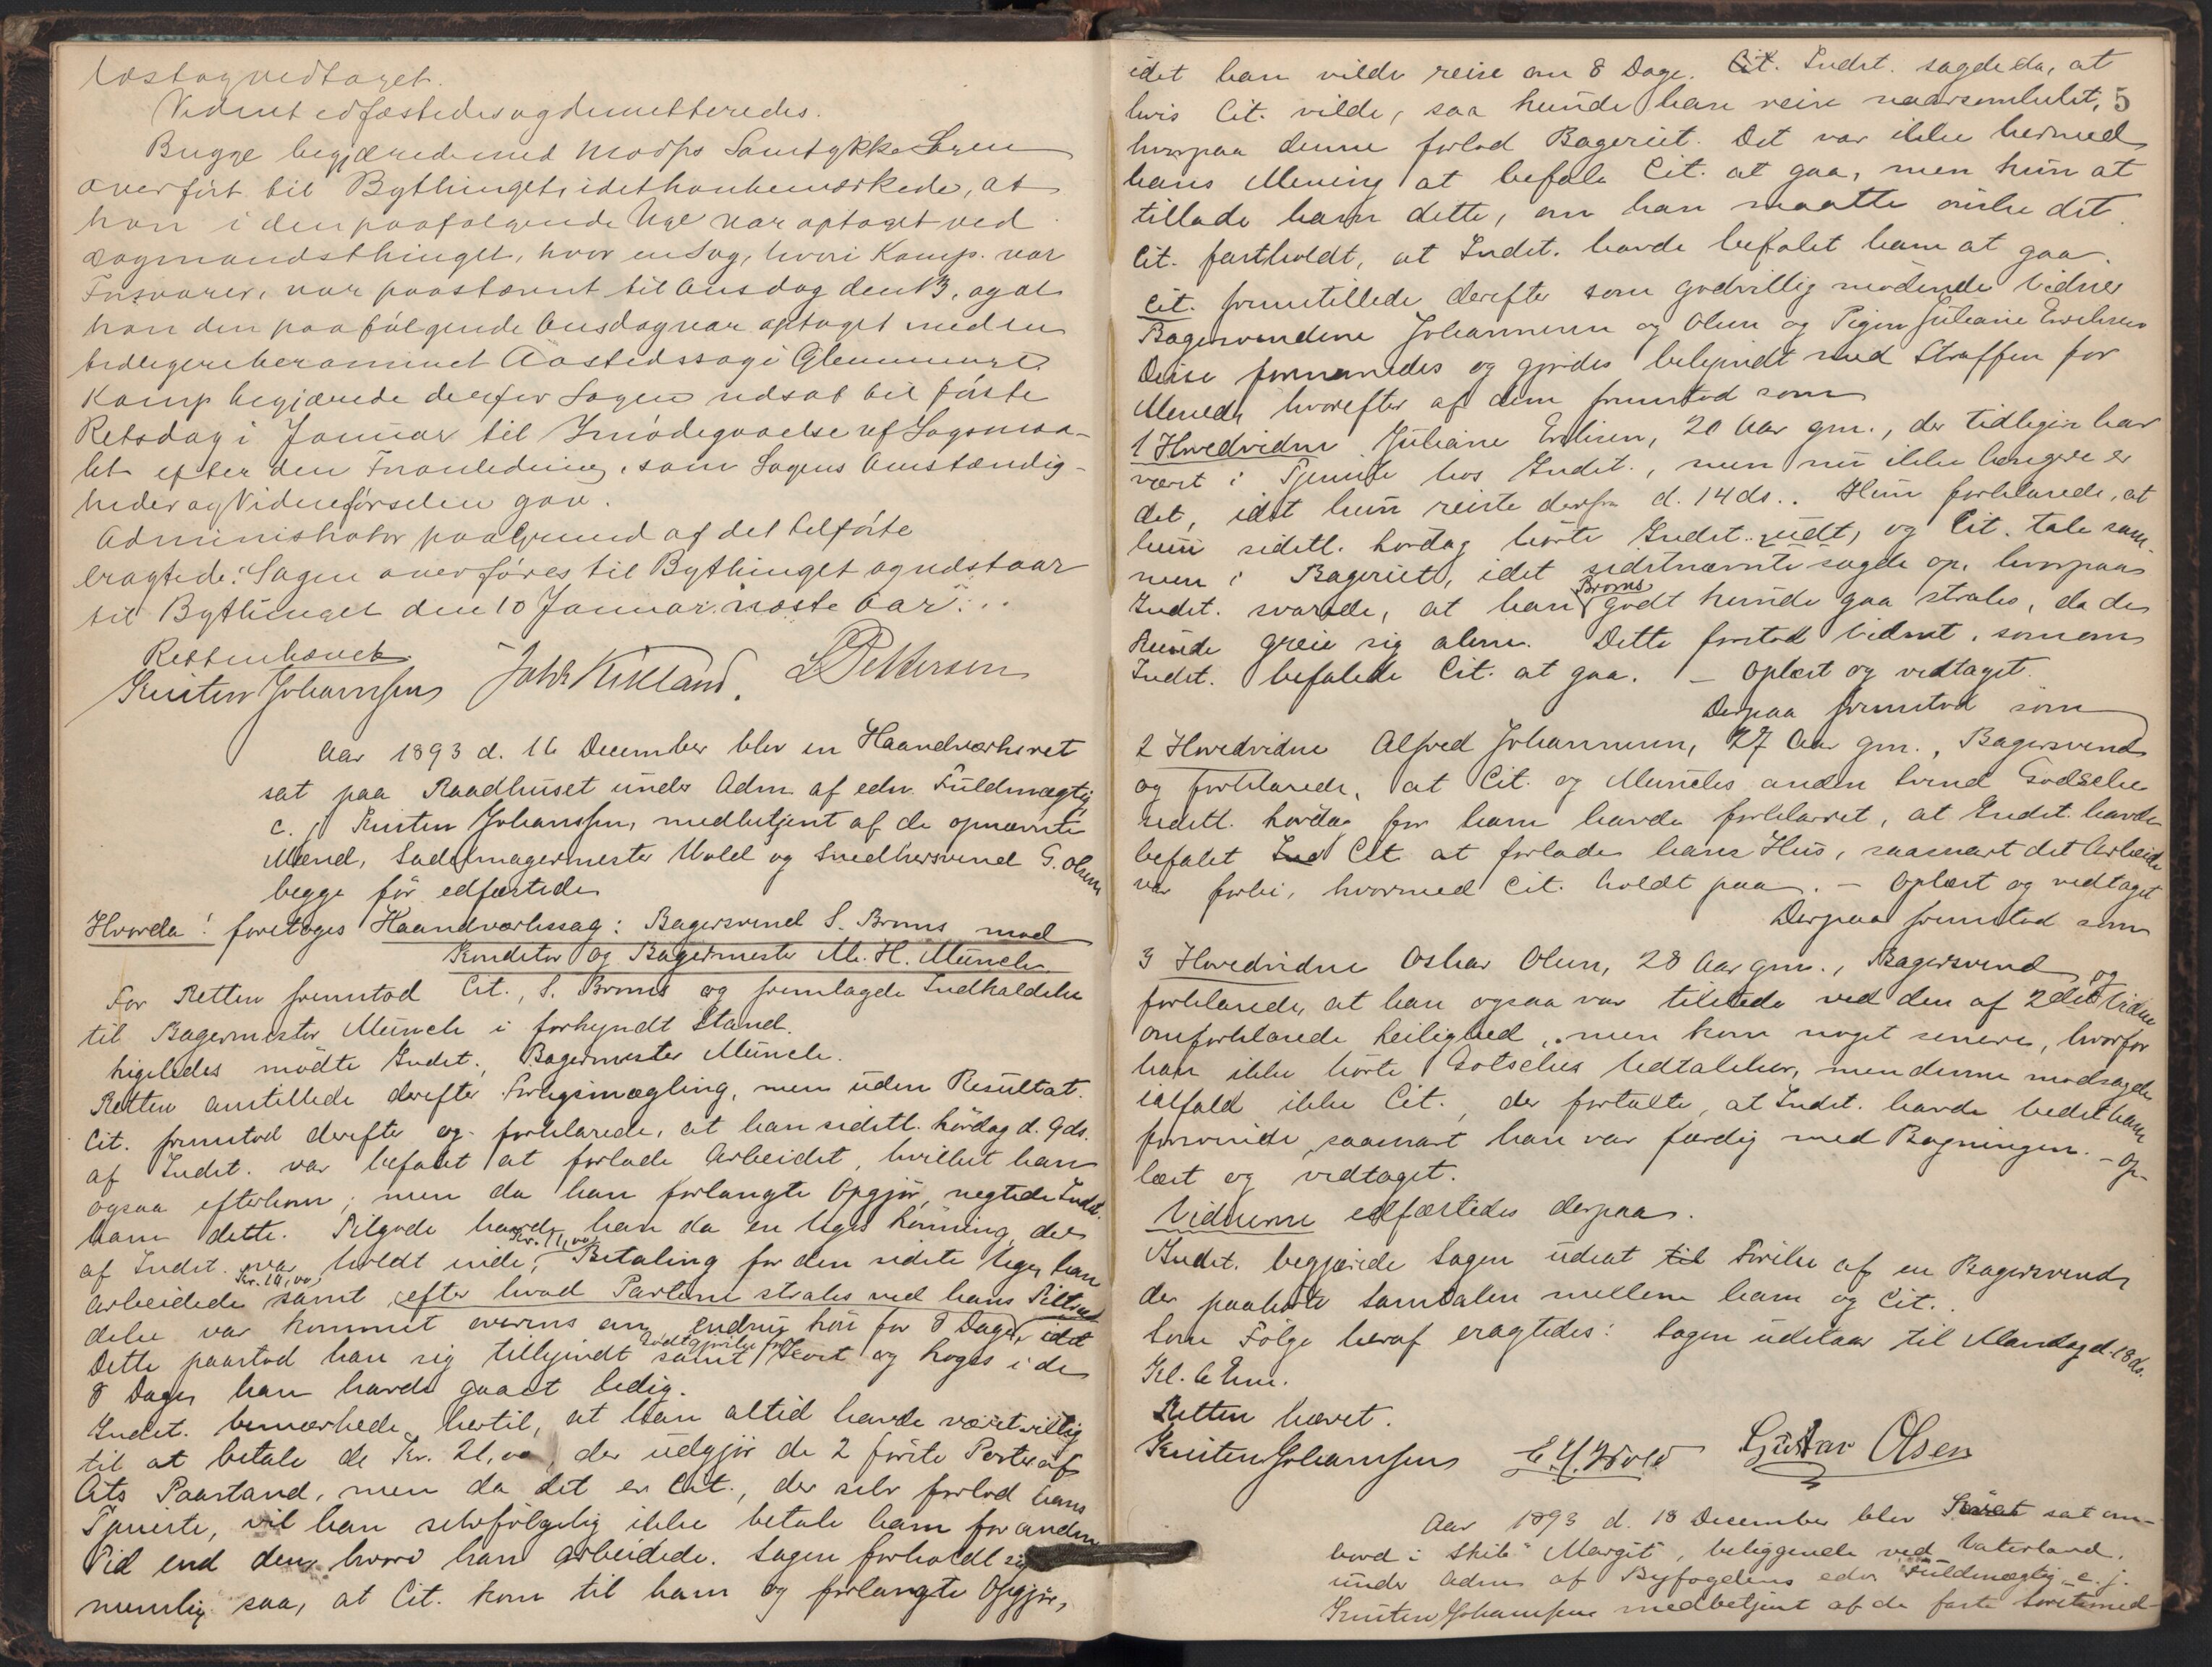 læst og vedtaget.
Vidnet edfæstedes og demitteredes.
Bugge begjærede med Modps Samtykke Sagen
overført til Bythinget, idet han bemærkede, at
han i den paafølgende Uge var optaget ved
Lagmandsthinget, hvor en Sag, hvori Kamp. var
Forsvarer, var paastævnt til Onsdag den 13, og at
han den paafølgende Onsdag var optaget med en
tidligere berammet Aastedssag i Glemminge.
Kamp begjærede derfor Sagen udsat til første
Retsdag i Januar til Imødegaaelse af Sagsmaa-
let efter den Foranledning, som Sagens Omstændig-
heder og Vidneførselen gav.
Administrator paa Grund af det tilførte
eragtede: Sagen overføres til Bythinget og udstaar
til Bythinget den 10 Januar næste Aar...
Retten hævet
Kristen Johanssen Joh. Kirkland. L Pettersen
Aar 1893 d. 16 December blev en Haandværksret
sat paa Raadhuset under Adm. af edsv. Fuldmægtig
c. j. Kristen Johanssen, medbetjent af de opnævnte
Mænd, Sadelmagermester Wold og Snedkersvend G. Olsen
begge før edfæstede
Hvorda! foretoges Haandværkssag: Bagersvend S. Broms mod
Konditor og Bagermester M. H. Münch.
For Retten fremstod Cit., S. Broms og fremlagde Indkaldelse
til Bagermester Münch i forkyndt Stand.
Ligeledes mødte Indst., Bagermester Münch.
Retten anstillede derefter Forligsmægling, men uden Resultat.
Cit. fremstod derefter og forklarede, at han sidstl. Lørdag d. 9 ds.
af Indst. var befalet at forlade Arbeidet, hvilket han
ogsaa efterkom; men da han forlangte Opgjør, negtede Indst.
ham dette. Tilgode havde han da en Uges Lønning, der
af Indst. var holdt inde, Kr. 11,00 Betaling for den sidste Uge, han
arbeidede Kr. 10,00 samt efter hvad Parterne strales ved hans Tiltræ-
delse var kommet overens om endnu Løn for 8 Dage, idet
dette paastod han sig tilkjendt samt Godtgjørelse for Kost og Logis i de
8 Dage, han havde gaaet ledig.
Indst. bemærkede hertil, at han altid havde været villig
til at betale de Kr. 21,00, der udgjør de 2 første Poster af
Cits Paastand, men da det er Cit., der selv forlod hans
Tjeneste, vil han selvfølgelig ikke betale ham for anden
Tid end den, hvori han arbeidede. Sagen forholdt sig
nemlig saa, at Cit. kom til ham og forlangte Opgjør,
5
idet han vilde reise om 8 Dage. Cit. Indst. sagde da, at
hvis Cit. vilde, saa kunde han reise naarsomhelst,
hvorpaa denne forlod Bageriet. Det var ikke hermed
hans Mening at befale Cit. at gaa, men kun at
tillade ham dette, om han maatte ønske det.
Cit. fastholdt, at Indst. havde befalet ham at gaa.
Cit. fremstillede derefter som godvillig mødende Vidner
Bagersvendene Johannesen og Olsen og Pigen Juliane Eriksen
Disse formanedes og gjordes bekjendt med Straffen for
Mened, hvorefter af dem fremstod som
1 Hovedvidne Juliane Eriksen, 20 Aar gm., der tidligere har
været i Tjeneste hos Indst., men nu ikke længere er
det, idet hun reiste derfra d. 14 ds.. Hun forklarede, at
hun sidstl. Lørdag hørte Indst. og Cit. tale sam-
men i Bageriet, idet sidstnævnte sagde op, hvorpaa
Indst. svarede, at han Broms godt kunde gaa strales, da de
kunde greie sig alene. Dette forstod Vidnet, som om
Indst. befalede Cit. at gaa. – Oplæst og vedtaget.
Derpaa fremstod som
2 Hovedvidne Alfred Johannesen, 27 Aar gm., Bagersvend
og forklarede, at Cit. og Münchs anden Svend Godschie
sidstl. Lørdag for ham havde forklarret, at Indst. havde
befalet Ind Cit at forlade hans Hus, saasnart det Arbeide
var forbi, hvormed Cit. holdt paa. – Oplæst og vedtaget
Derpaa fremstod som
3 Hovedvidne Oskar Olsen, 28 Aar gm., Bagersvend og
forklarede, at han ogsaa var tilstede ved den af 2det Vidne
omforklarede Leilighed, men kom noget senere, hvorfor
han ikke hørte Gotschies Udtalelser, men denne modsagde
ialfald ikke Cit., der fortalte, at Indst. havde bedet ham
forsvinde, saasnart han var færdig med Bagningen. – Op-
læst og vedtaget.
Vidnerne edfæstedes derpaa.
Indst. begjærede Sagen udsat til Førelse af en Bagersvend,
der paahørte Samtalen mellem ham og Cit..
Som Følge heraf eragtedes: Sagen udstaar til Mandag d. 18 ds.
Kl. 6 Em.
Retten hævet.
Kristen Johanssen E. H. Wold Gustav Olsen
Aar 1893 d. 18 December blev Søret sat om-
bord i Skib "Margit", beliggende ved Vaterland,
under Adm af Byfogdens edsv Fuldmægtig c. j.
Kristen Johanssen medbetjent af de faste Søretsmed-